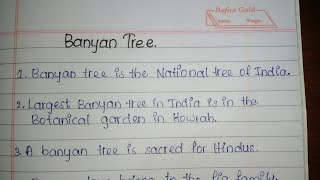 Rafina Gold
Banyan Tree.
1. Banyan tree is the National tree of India.
2. Largest Banyan tree in India is in the
Botanical garden in Howrah.
3. A banyan tree is sacred for Hindus.
belong to the fig family.